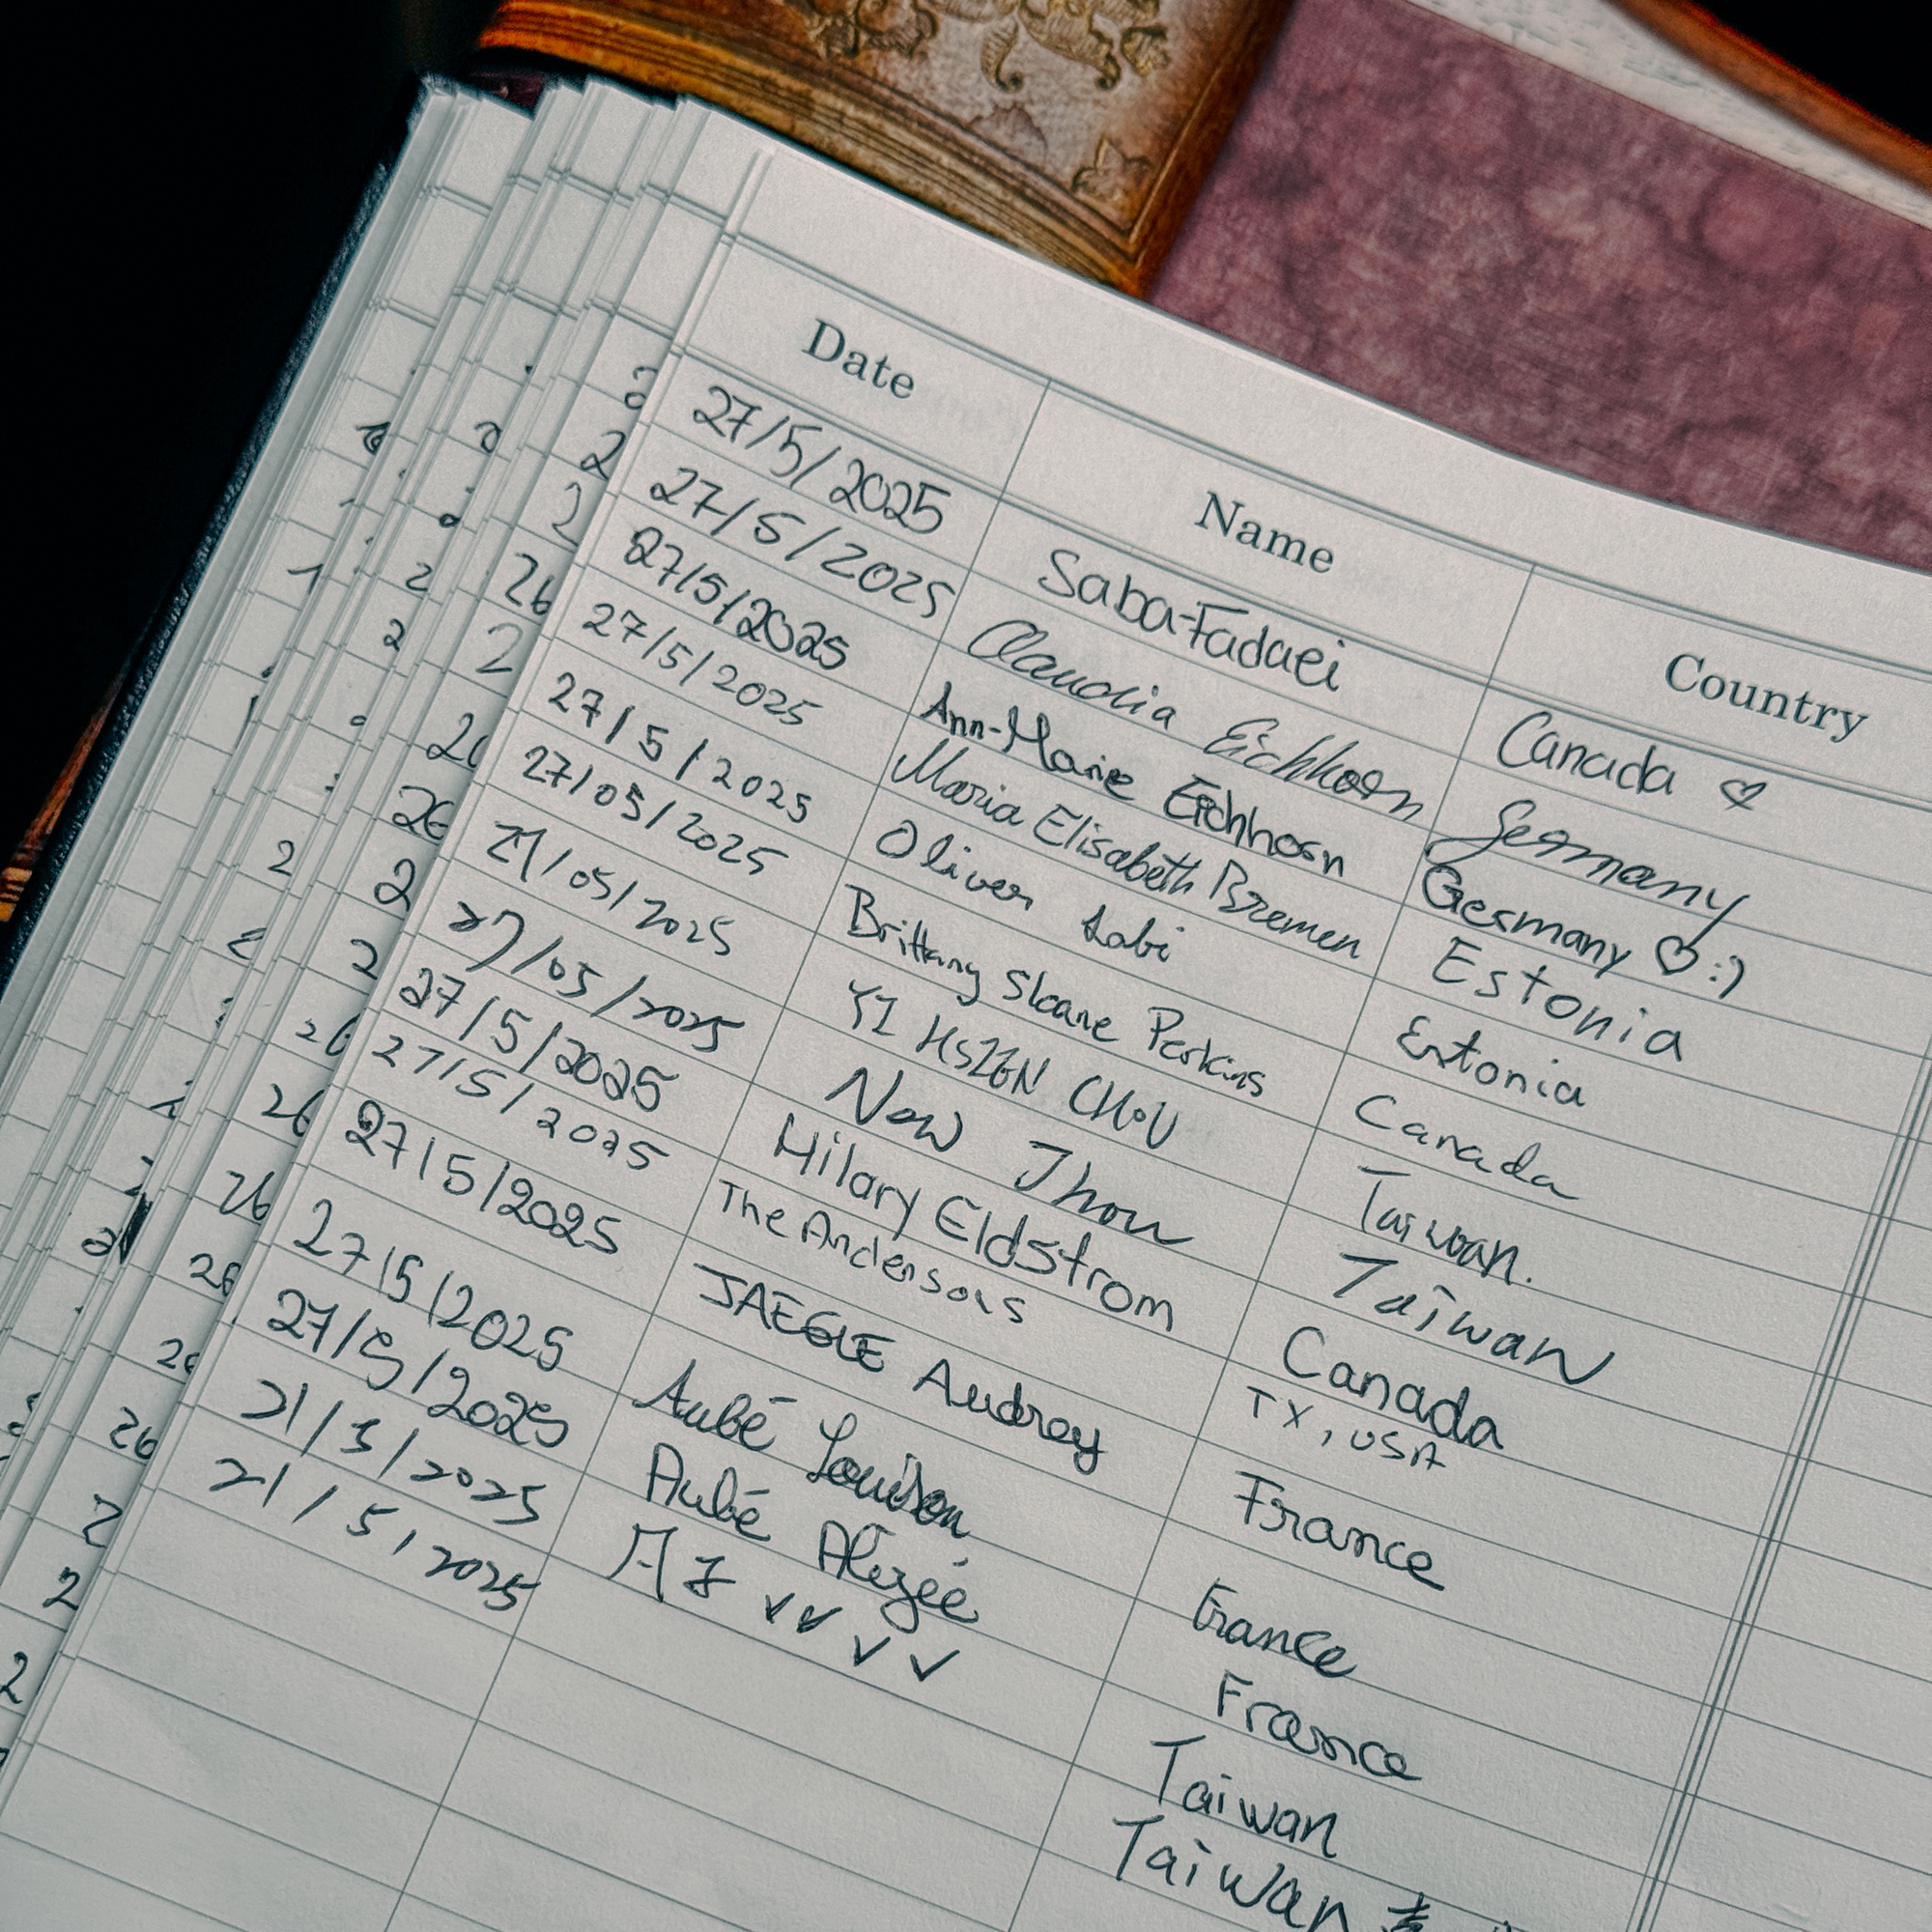 Date Name Country
27/5/2025 Saba Fadaei Canada ♡
27/5/2025 Claudia Eichhorn Germany
27/5/2025 Ann-Marie Eichhorn Germany ♡ :)
27/5/2025 Maria Elisabeth Bremen Estonia
27/5/2025 Oliver Estonia
27/05/2025 Brittany Sloane Perkins Canada
27/05/2025 YI HSIEN CHOU Taiwan.
27/05/2025 Taiwan
27/5/2025 Hilary Eldstrom Canada
27/5/2025 The Andersons TX, USA
27/5/2025 JAEGLE Audrey France
27/5/2025 Aubé Louison France
27/5/2025 Aubé Alizée France
2025 Taiwan
5/2025 Taiwan